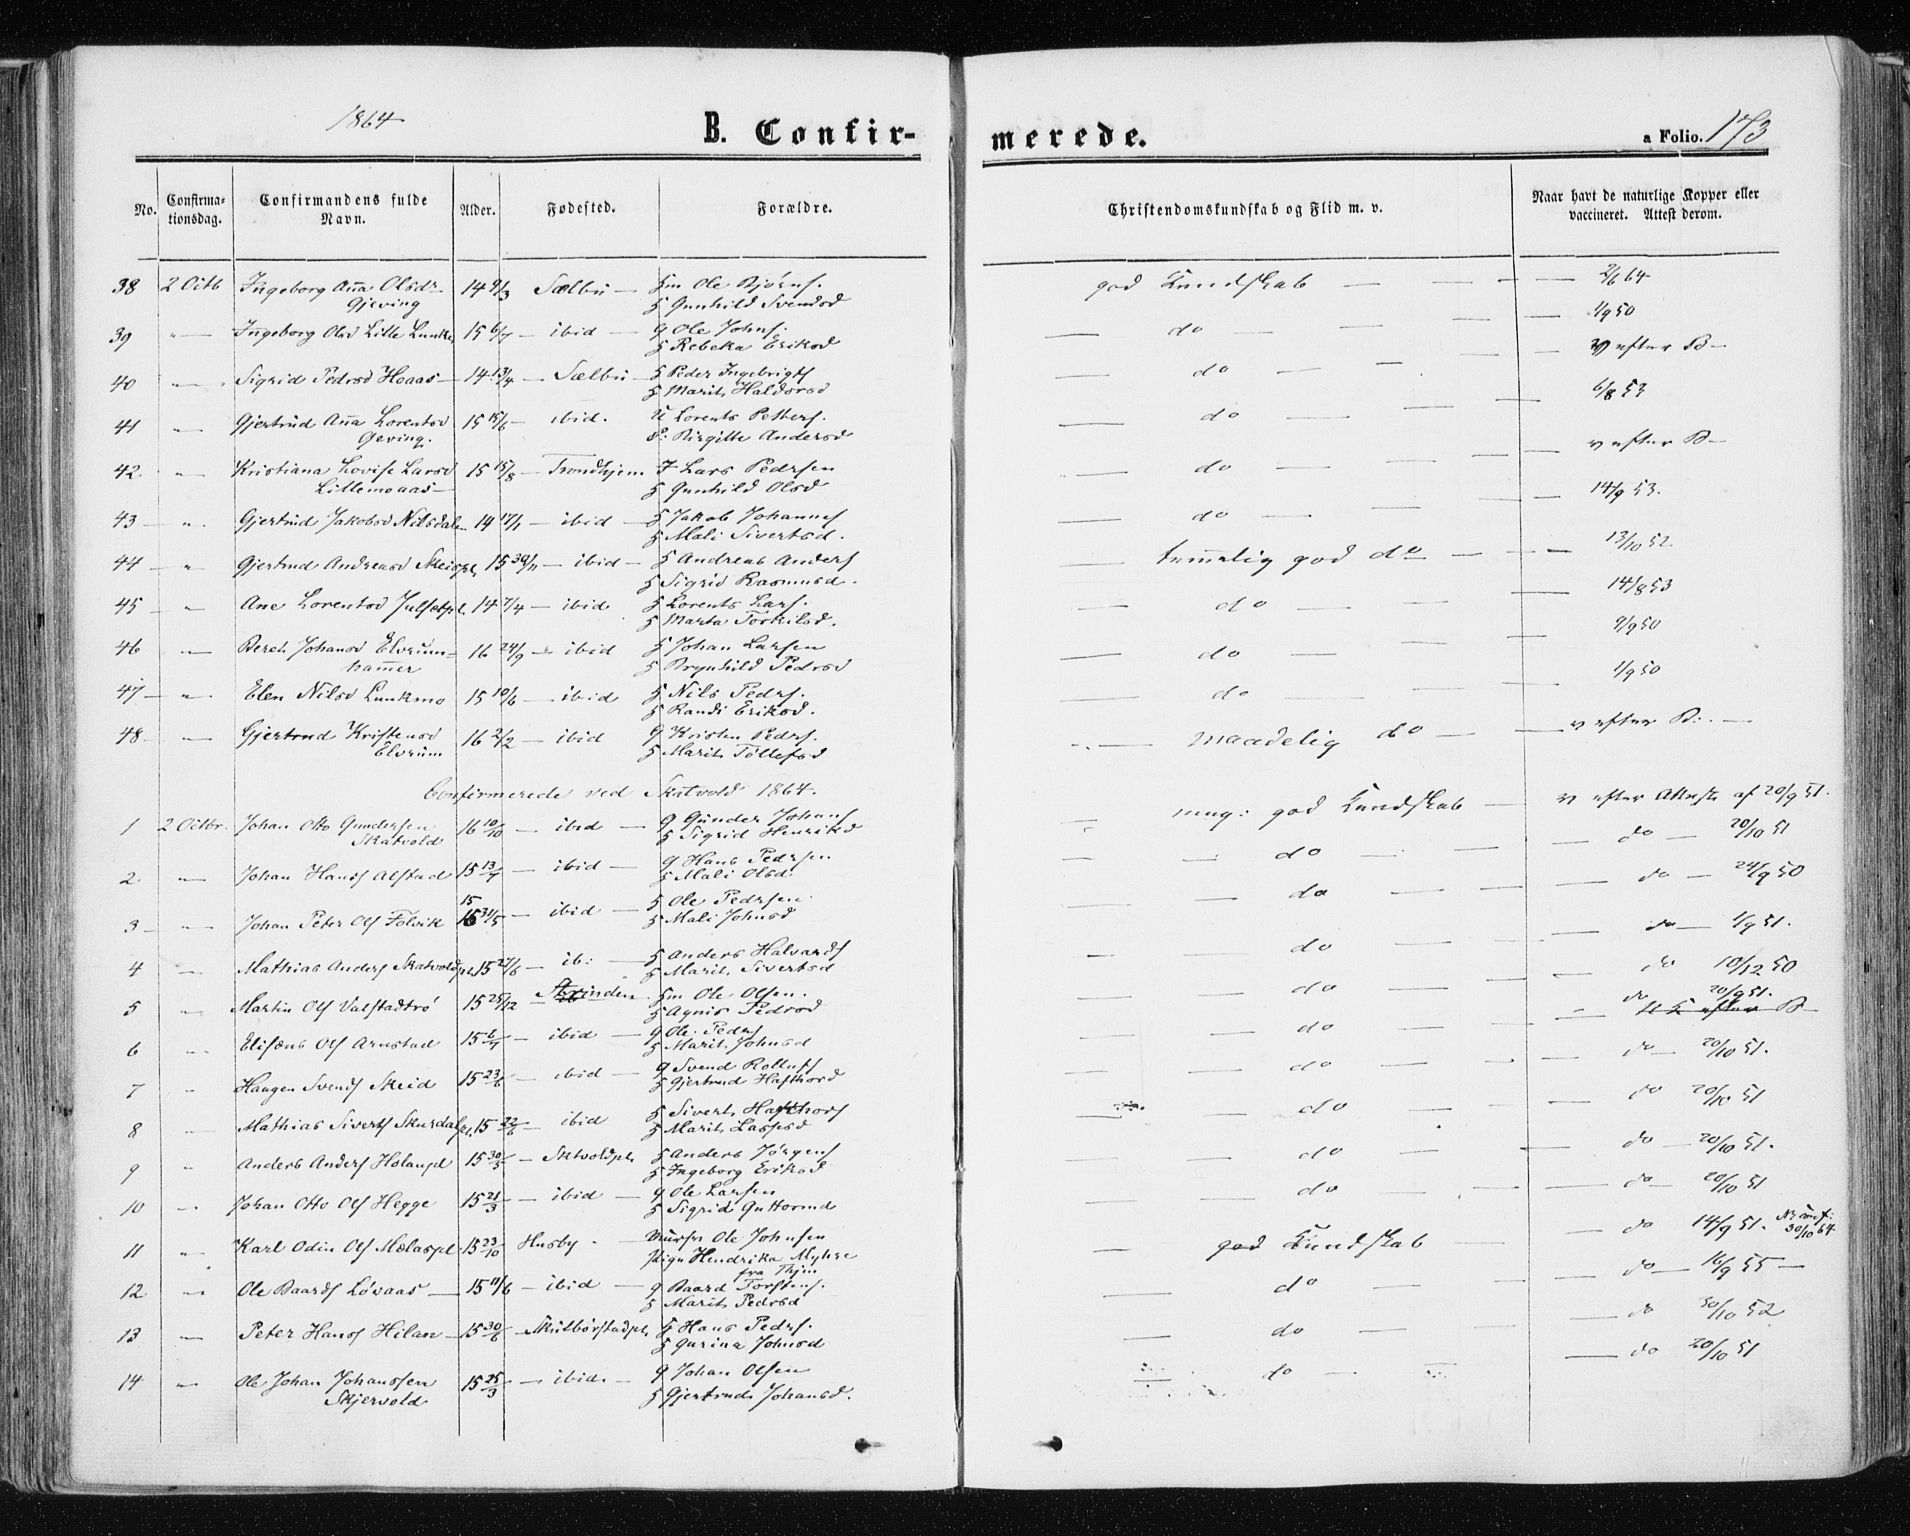 1864
B. Confir-
merede.
a Folio. 173
No.
Confirma-
tionsdag.
Confirmandens fulde
Navn.
Alder.
Fødested.
Forældre.
Christendomskundskab og Flid m. v.
Naar havt de naturlige Kopper eller
vaccineret. Attest derom.
38 2 Octb Ingeborg Aña Olsdr 14 9/3 Sælbu — Ole Bjørns. god Kundskab — 2/6 64
Gjeving Gunhild Svendsd
39 " Ingeborg Olsd Lille Lunke 15 6/7 — ibid — g Ole Johns. do — 1/9 50
Rebeka Eriksd
40 " Sigrid Pedrsd Hoaas — 14 13/4 — Sælbu — Peder Ingebrigts do — v efter B —
Marit Haldorsd
41 " Gjertrud Aña Lorentsd 15 15/6 — ibid. Lorents Petters. do — 6/8 53
Geving. Birgitte Andersd
42 " Kristiana Lovise Larsd 15 15/8 — Trondhjem Lars Pedersen do — v efter B —
Littemoaas — Gunhild Olsd
43 — " Gjertrud Jakobsd Nilsdal 14 17/1 — ibid — Jakob Johannes do — 14/9 53.
Mali Sivertsd.
44 — " Gjertrud Andreasd Skeispl. 15 — ibid — Andreas Anders tem̄elig god do — 13/10 52
Sigrid Rasmusd.
45 " Ane Lorentsd Julsetpl. 14 7/4 — ibid Lorents Lars. do — 14/8 53
Marta Torkilsd.
46 " Beret Johansd Elvrum- 16 24/9 — ibid Johan Larsen do — 9/9 50
ham̄er Brynhild Pedrsd
47 — " Elen Nilsd Lunkmo 15 10/6 — ibid Nils Peders. do — 1/9 50
Randi Eriksd.
48 — " Gjertrud Kristensd 16 2/2 — ibid g Kristen Peders. maadelig do — v efter B. —
Elvrum Marit Tollefsd
Confirmerede ved Skatvold 1864.
1 2 Octbr. Johan Otto Gundersen 16 10/10 — ibid — g Gunder Johans meg: god Kundskab — v efter Attest af 20/9 51.
Skatvold Sigrid Henriksd
2 " Johan Hans Alstad 15 13/7 — ibid — g Hans Pedersen do — do — 20/10 51
Mali Olsd
3 — " Johan Peter Ols Folvik 15 31/5 — ibid — Ole Pedersen do — do — 24/9 50
Mali Johnsd
4 " Mathias Anders Skatvoldpl. 15 27/6 — ib: — Anders Halvards do — do — 1/9 51.
Marit Sivertsd
5 " Martin Ols Valstadtrø 15 25/12 — Strinden Ole Olsen. do — do 10/12 50
Agnis Pedrsd
6 " Elisæus Ols Arnstad 15 6/7 — ibid — g Ole Peders do — do 20/9 51.
Marit Johnsd efter B —
7 " Haagen Svends Skeid 15 23/6 — ibid — g Svend Rollufs do — do — 20/10 51.
Gjertrud Hafthord
8 " Mathias Siverts Skurdalpl. 15 22/6 — ibid Sivert Hafthors do — do 20/10 51
Marit Laspsd
9 " Anders Anders Holanpl 15 30/5 — Sktvoldpl. Anders Jørgens do — do — 20/10 51.
Ingeborg Eriksd
10 " Johan Otto Ols Hegge 15 21/3 — ibid — g Ole Larsen do — do — 20/10 51
Sigrid Guttormd
11 " Karl Odin Ols Mælaspl. 15 23/10 Husby — Ole Johnsen god Kundskab — do 14/9 51. 30/10 64
Pige Hendrika Myhre
fra Thjm
12 " Ole Baards Løvaas — 15 11/6 — ibid — g Baard Torstens. do — do — 16/9 55 —
Marit Pedrsd
13 — Peter Hans Hilan — 15 30/6 — Skulbørstadpl. Hans Peders. do — do 30/10 52
Gurina Johnsd
14 " Ole Johan Johanssen 15 25/3 — ibid. — g Johan Olsen do — do 20/10 51
Skjervold Gjertrud Johansd.